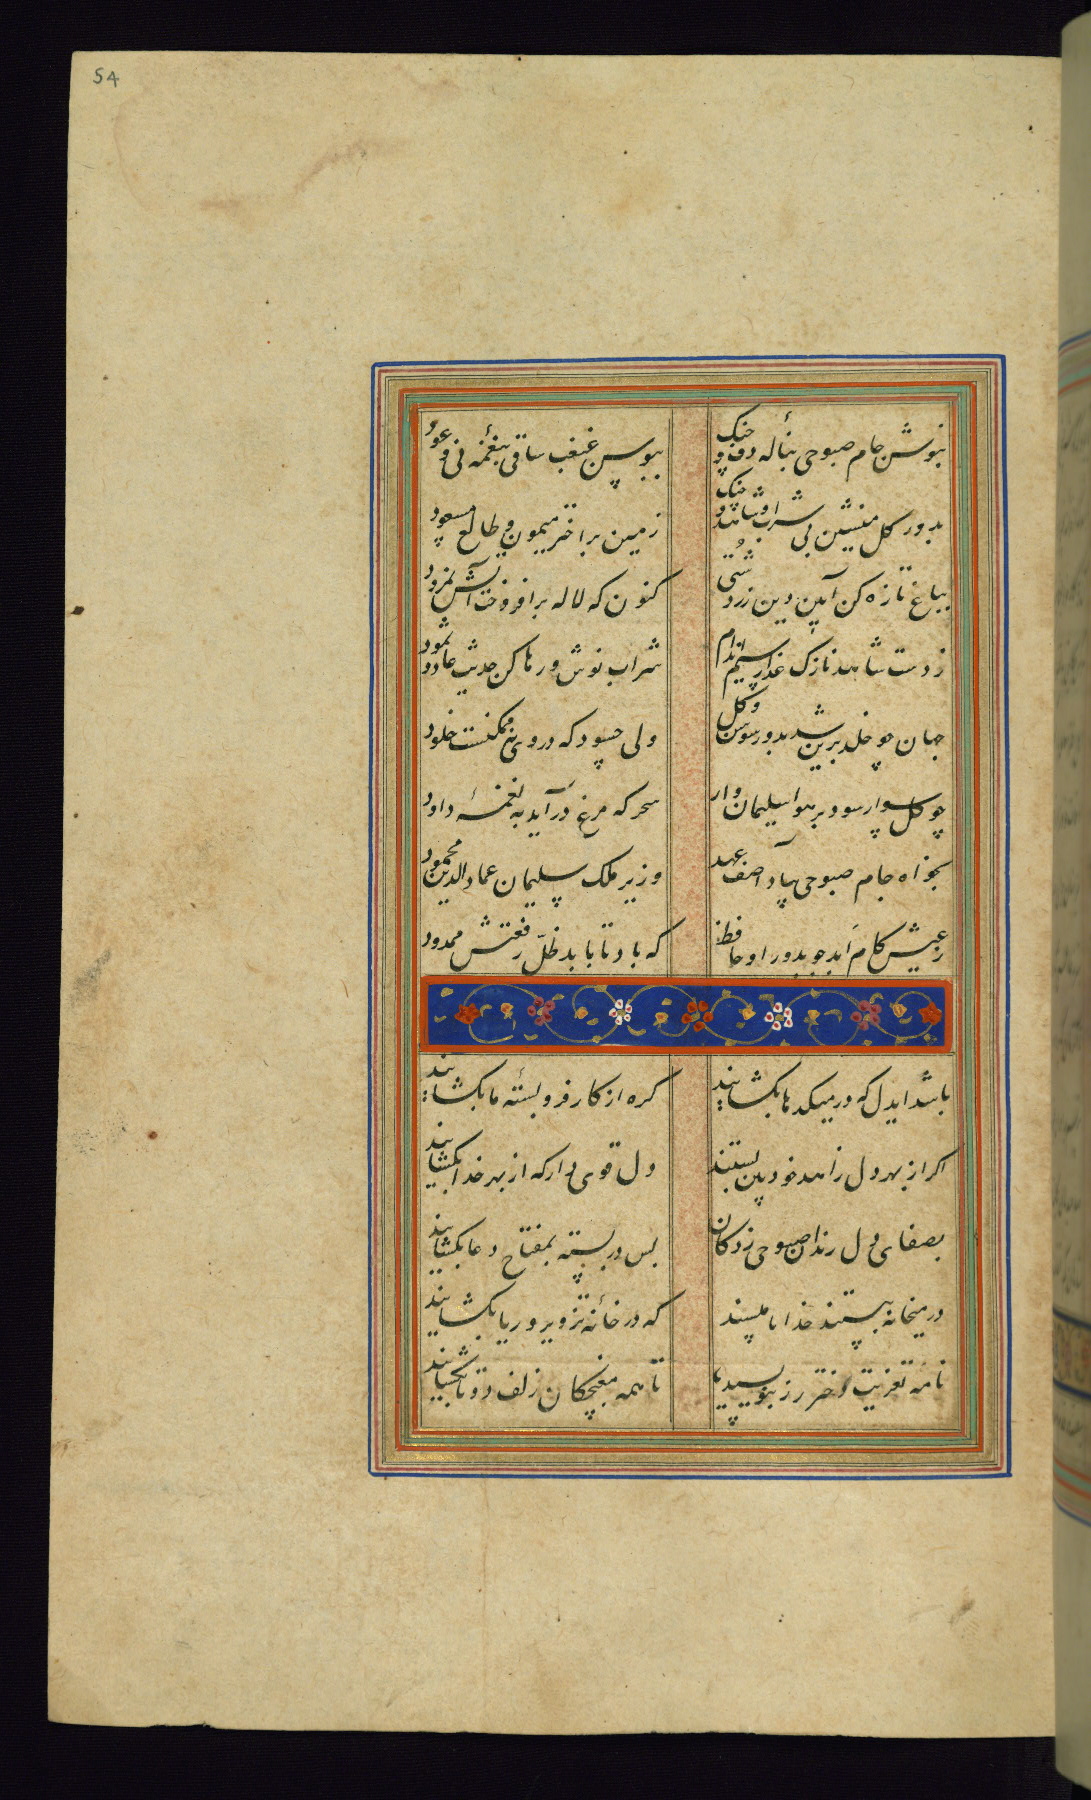 54
بنوش جام صبوحی بنالهٔ دف و چنک
ببوس غبغب ساقی بنغمهٔ نی و عود
بدور کل منشین بی شراب و شاهد و چنک
زمین براختر میمون و طالع مسعود
بباغ تازه کن آیین دین زردشتی
کنون که لاله برافروخت آتش نمرود
زدست شاهد نازک عذار سیم اندام
شراب نوش و رها کن حدیث عاد و ثمود
جهان چو خلد برین شد بدور سوسن و کل
ولی چسود که در وی نه ممکنست خلود
چو کل سوار سود بر هوا سلیمان وار
سحر که مرغ درآید به نغمهٔ داود
بخواه جام صبوحی بیاد آصف عهد
وزیر ملک سلیمان عماد الدین محمود
زعیش کام ابد جو بدور او حافظ
که باد تا بابد ظلّ رفعتش ممدود
باشد ایدل که در میکدها بکشایند
کره از کار فروبستهٔ ما بکشایند
اکر از بهر دل زاهد خودبین بستند
دل قوی دار که از بهر خدا بکشایند
بصفای دل رندان صبوحی زدکان
بس در بسته بمفتاح دعا بکشایند
در میخانه ببستند خدایا مپسند
که در خانهٔ تزویر و ریا بکشایند
نامه تعزیت دختر رز بنویسید
تا همه مغبچکان زلف دوتا بکشایند